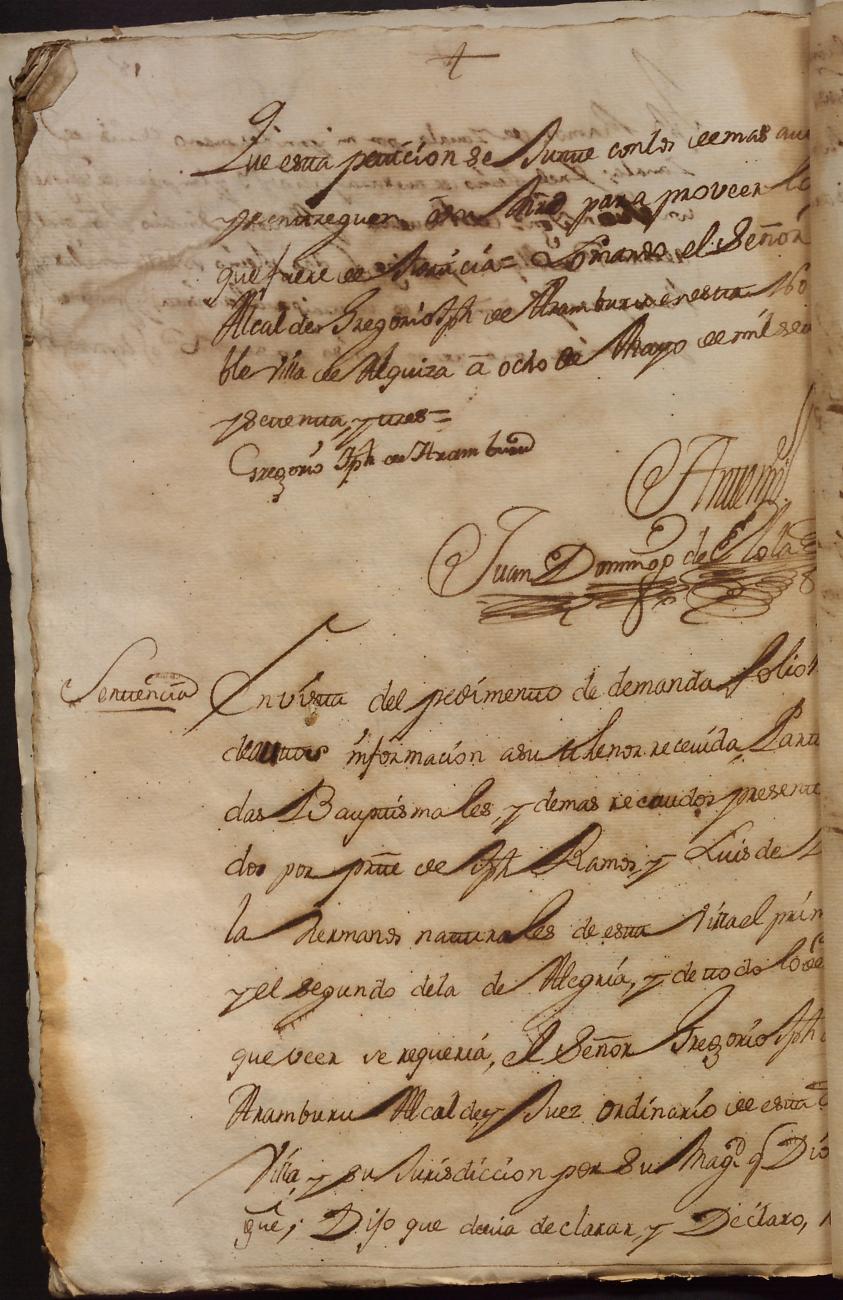 Que esta peticion se Junte con los demas au
y se entreguen a su Mrd para proveer lo
que fuere de Justicia= Lo mando el Señor
Alcalde Gregorio Jph de Aramburu en esta No
ble Villa de Alquiza a ocho de Mayo de mil sete
y setenta, y tres=
Gregorio Jph de Aramburu
Ante mi
Juan Domingo de Olola
Sentencia
En vista del pedimento de demanda folio
de autos informacion a su thenor recevida, Parti
das Bauptismales, y demas recaudos presenta
dos por prte de Jph Ramos, y Luis de
la hermanos naturales de esta Villa el prim
y el segundo dela de Alegria, y de todo lo de
que veer se requeria, el Señor Gregorio Jph
Aramburu Alcalde y Juez ordinario de esta
Villa, y su Jurisdiccion por Su Magd q Dio
gue; Dijo que devia declarar, y Declaro,